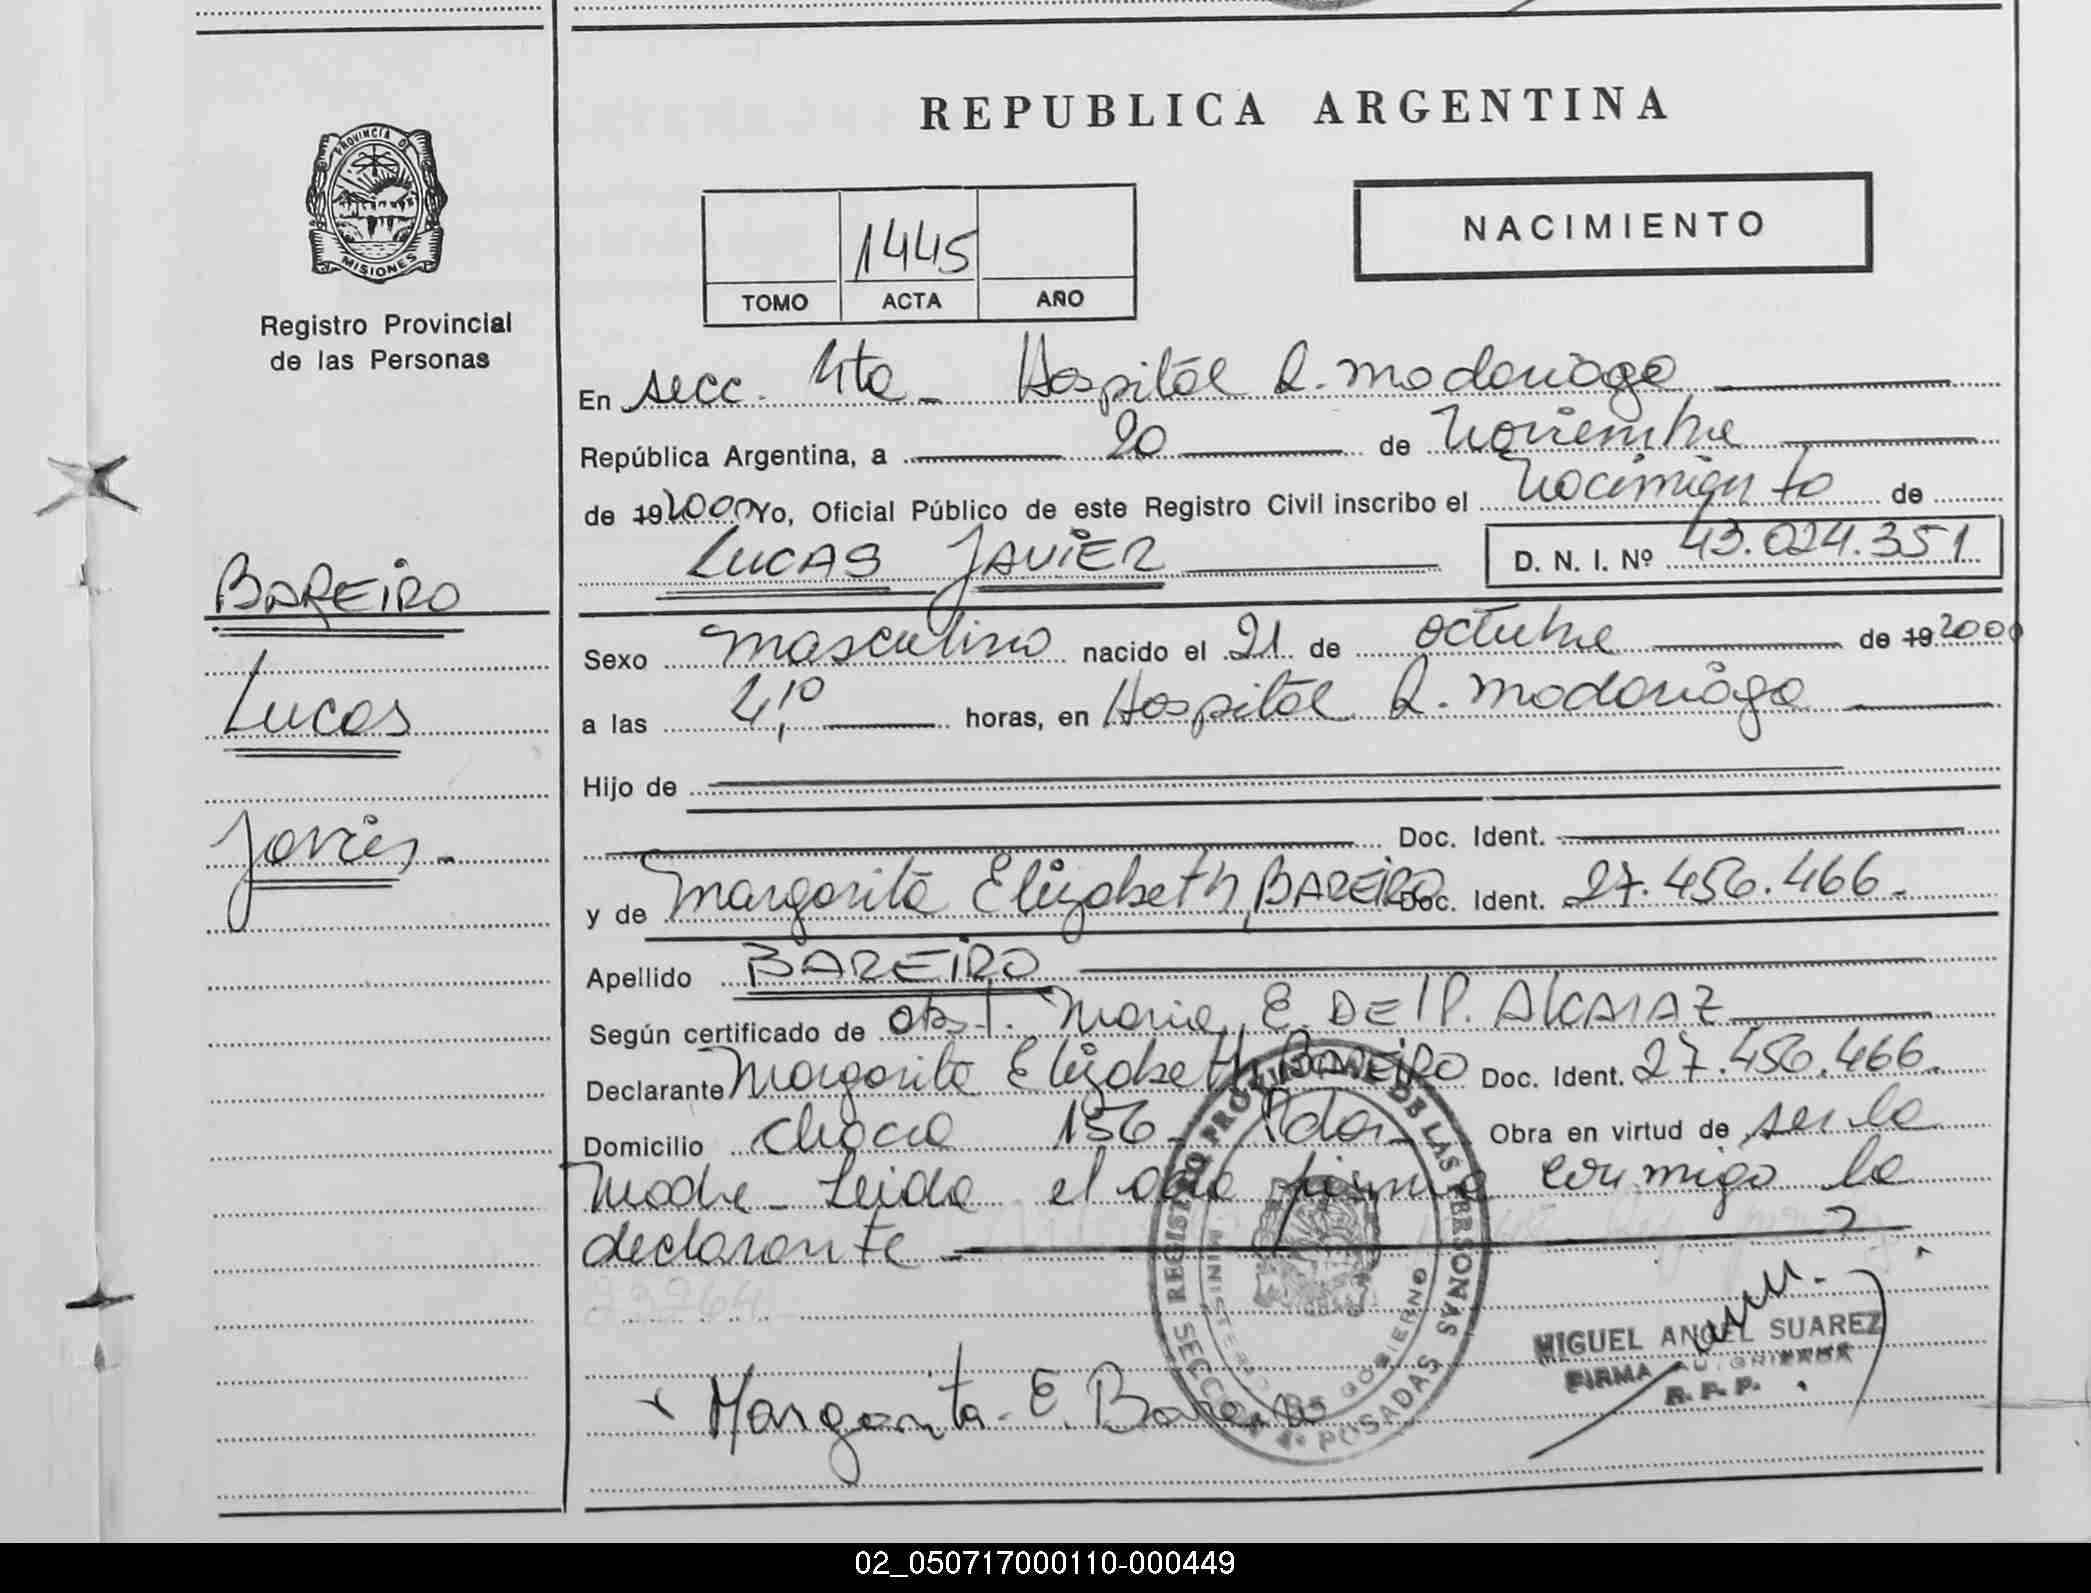 REPUBLICA ARGENTINA
PROVINCIA DE
MISIONES
Registro Provincial
de las Personas
BAREIRO
Lucas
Javier
1445
TOMO ACTA AÑO
NACIMIENTO
En secc. 4ta - Hospital R. Madariaga
República Argentina, a 20 de Noviembre
de 19 2000 Yo, Oficial Público de este Registro Civil inscribo el Nacimiento de
LUCAS JAVIER D. N. I. Nº 43.024.351
Sexo masculino nacido el 21 de octubre de 19 2000
a las 4,10 horas, en Hospital R. Madariaga
Hijo de
Doc. Ident.
y de Margarita Elizabeth BAREIRO Doc. Ident. 27.456.466.
Apellido BAREIRO
Según certificado de obst. Maria E. DEl P. AlCARAZ
Declarante Margarita Elizabeth BAREIRO Doc. Ident. 27.456.466.
Domicilio chacra 156 - Pdas. Obra en virtud de ser la
Madre - Leida el acta firma conmigo la
declarante
23264
REGISTRO PROVINCIAL DE LAS PERSONAS
MINISTERIO DE GOBIERNO
SECCION 4º POSADAS
MIGUEL ANGEL SUAREZ
FIRMA AUTORIZADA
R. P. P.
x Margarita E. Bareiro
02_050717000110-000449